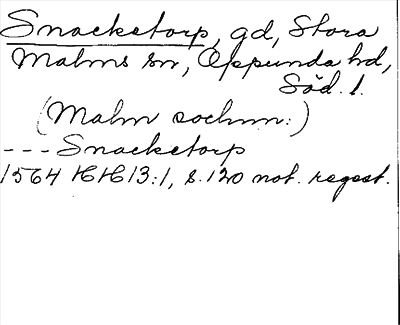 Snacketorp, gd, Stora
Malms sn, Oppunda hd,
Söd. l.
(Malm sochnn:)
--- Snacketorp
1564 HH 13:1, s. 120 not. regest.